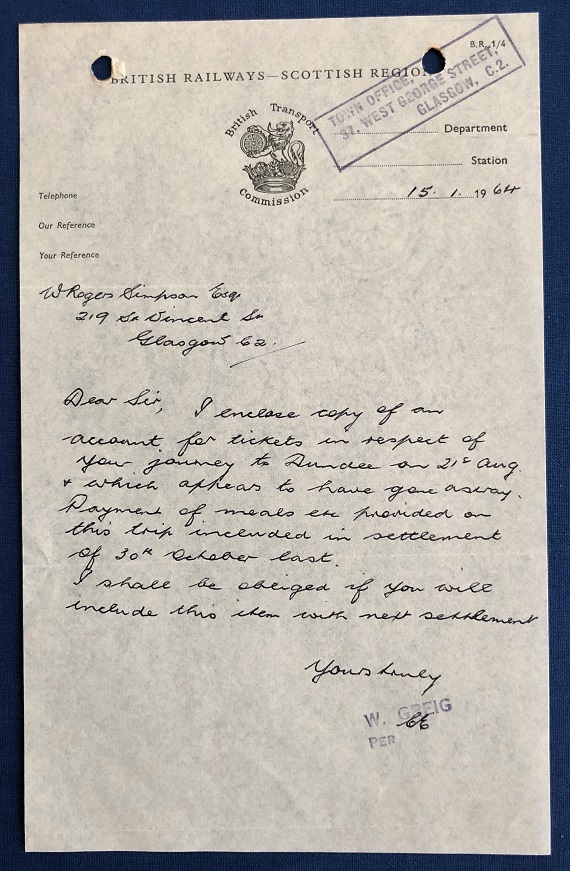 B.R. 1/4
BRITISH RAILWAYS—SCOTTISH REGION
TOWN OFFICE,
37, WEST GEORGE STREET,
GLASGOW, C.2.
British Transport
Commission
Department
Station
15. 1. 1964
Telephone
Our Reference
Your Reference
W Rogers Simpson Esq
219 St Vincent St
Glasgow C2.
Dear Sir, I enclose copy of an
account for tickets in respect of
your journey to Dundee on 21st Aug.
& which appears to have gone astray.
Payment of meals etc provided on
this trip included in settlement
of 30th October last.
I shall be obliged if you will
include this item with next settlement
Yours truly
W. GREIG
PER